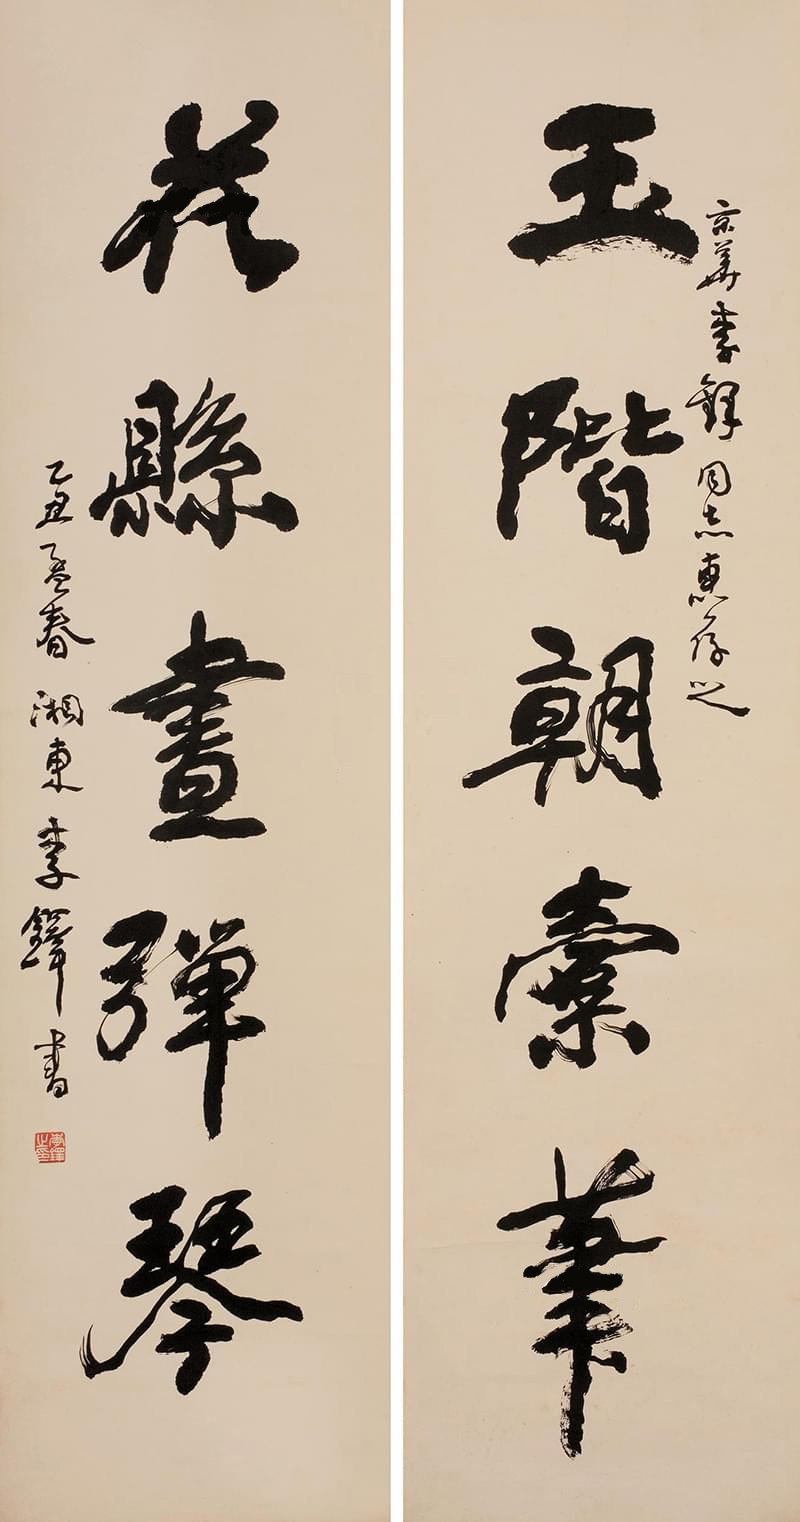 京華李同志惠存之
玉階朝橐筆
花縣晝彈琴
乙丑孟春湘東李鐸書
李鐸之印